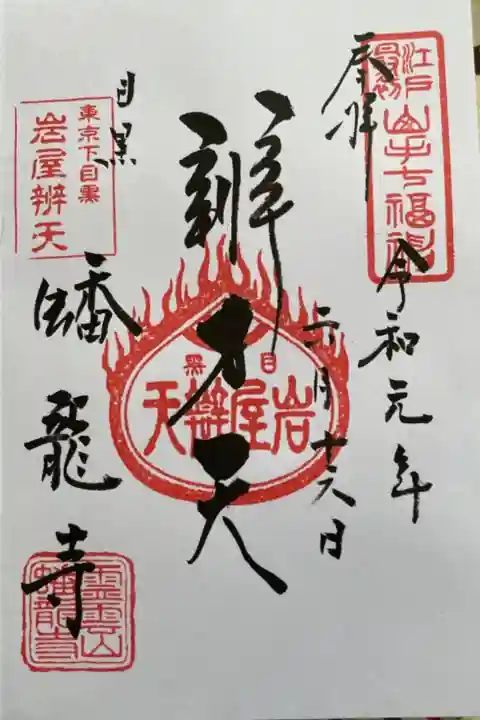 奉拝
江戸最初
山手七福神
令和元年
六月十六日
辨才天
目黒
岩屋辨天
東京下目黒
岩屋辨天
目黒
蟠龍寺
霊雲山
蟠龍寺